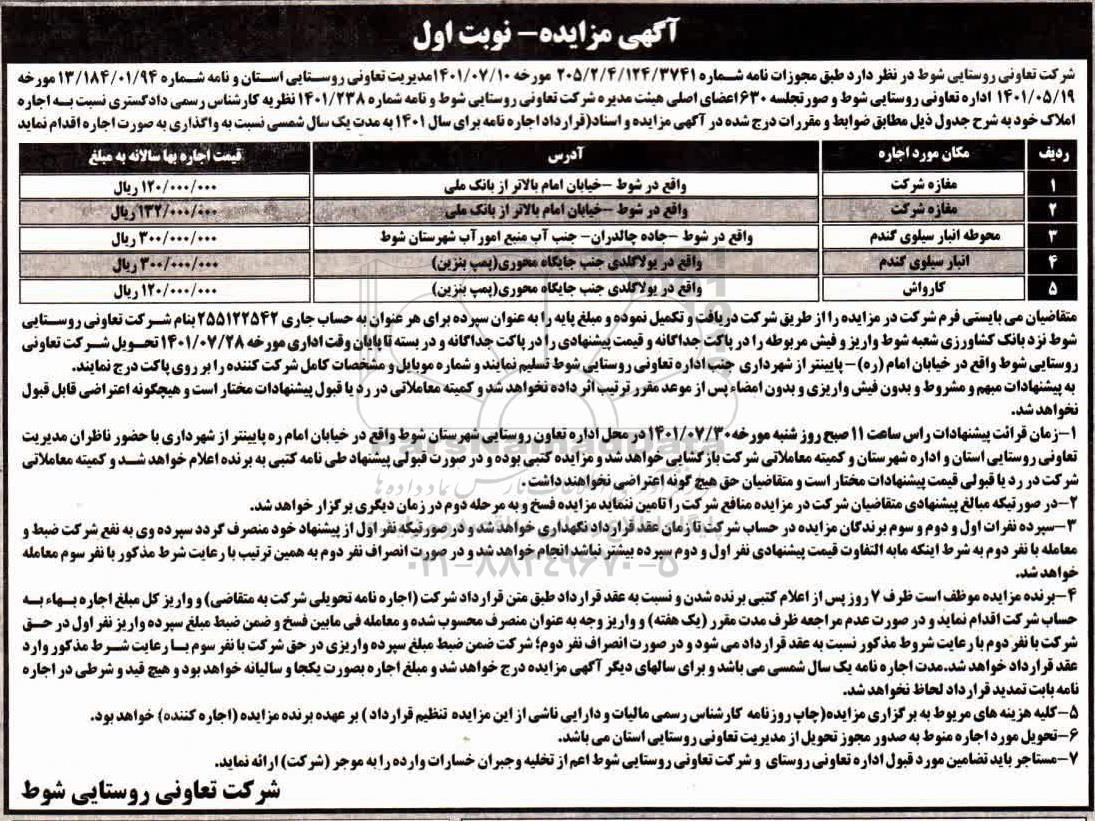 آگهی مزایده- نوبت اول
شرکت تعاونی روستایی شوط در نظر دارد طبق مجوزات نامه شماره ۲۰۵/۲/۴/۱۲۴/۳۷۴۱ مورخه ۱۴۰۱/۰۷/۱۰مدیریت تعاونی روستایی استان و نامه شماره ۱۳/۱۸۴/۰۱/۹۴ مورخه
۱۴۰۱/۰۵/۱۹ اداره تعاونی روستایی شوط و صورتجلسه ۶۳۰ اعضای اصلی هیئت مدیره شرکت تعاونی روستایی شوط و نامه شماره ۱۴۰۱/۲۳۸ نظریه کارشناس رسمی دادگستری نسبت به اجاره
املاک خود به شرح جدول ذیل مطابق ضوابط و مقررات درج شده در آگهی مزایده و اسناد(قرارداد اجاره نامه برای سال ۱۴۰۱ به مدت یک سال شمسی نسبت به واگذاری به صورت اجاره اقدام نماید
ردیف مکان مورد اجاره آدرس قیمت اجاره بها سالانه به مبلغ
۱ مغازه شرکت واقع در شوط -خیابان امام بالاتر از بانک ملی ۱۲۰/۰۰۰/۰۰۰ ریال
۲ مغازه شرکت واقع در شوط -خیابان امام بالاتر از بانک ملی ۱۳۲/۰۰۰/۰۰۰ ریال
۳ محوطه انبار سیلوی گندم واقع در شوط -جاده چالدران- جنب آب منبع امورآب شهرستان شوط ۳۰۰/۰۰۰/۰۰۰ ریال
۴ انبار سیلوی گندم واقع در یولاگلدی جنب جایگاه محوری(پمپ بنزین) ۳۰۰/۰۰۰/۰۰۰ ریال
۵ کارواش واقع در یولاگلدی جنب جایگاه محوری(پمپ بنزین) ۱۲۰/۰۰۰/۰۰۰ ریال
متقاضیان می بایستی فرم شرکت در مزایده را از طریق شرکت دریافت و تکمیل نموده و مبلغ پایه را به عنوان سپرده برای هر عنوان به حساب جاری ۲۵۵۱۲۲۵۴۲ بنام شرکت تعاونی روستایی
شوط نزد بانک کشاورزی شعبه شوط واریز و فیش مربوطه را در پاکت جداگانه و قیمت پیشنهادی را در پاکت جداگانه و در بسته تا پایان وقت اداری مورخه ۱۴۰۱/۰۷/۲۸ تحویل شرکت تعاونی
روستایی شوط واقع در خیابان امام (ره)- پایینتر از شهرداری جنب اداره تعاونی روستایی شوط تسلیم نمایند و شماره موبایل و مشخصات کامل شرکت کننده را بر روی پاکت درج نمایند.
به پیشنهادات مبهم و مشروط و بدون فیش واریزی و بدون امضاء پس از موعد مقرر ترتیب اثر داده نخواهد شد و کمیته معاملاتی در رد یا قبول پیشنهادات مختار است و هیچگونه اعتراضی قابل قبول
نخواهد شد.
۱-زمان قرائت پیشنهادات راس ساعت ۱۱ صبح روز شنبه مورخه ۱۴۰۱/۰۷/۳۰ در محل اداره تعاون روستایی شهرستان شوط واقع در خیابان امام ره پایینتر از شهرداری با حضور ناظران مدیریت
تعاونی روستایی استان و اداره شهرستان و کمیته معاملاتی شرکت بازگشایی خواهد شد و مزایده کتبی بوده و در صورت قبولی پیشنهاد طی نامه کتبی به برنده اعلام خواهد شد و کمیته معاملاتی
شرکت در رد یا قبولی قیمت پیشنهادات مختار است و متقاضیان حق هیچ گونه اعتراضی نخواهند داشت .
۲-در صورتیکه مبالغ پیشنهادی متقاضیان شرکت در مزایده منافع شرکت را تامین ننماید مزایده فسخ و به مرحله دوم در زمان دیگری برگزار خواهد شد.
۳-سپرده نفرات اول و دوم و سوم برندگان مزایده در حساب شرکت تا زمان عقد قرارداد نگهداری خواهد شد و در صورتیکه نفر اول از پیشنهاد خود منصرف گردد سپرده وی به نفع شرکت ضبط و
معامله با نفر دوم به شرط اینکه مابه التفاوت قیمت پیشنهادی نفر اول و دوم سپرده بیشتر نباشد انجام خواهد شد و در صورت انصراف نفر دوم به همین ترتیب با رعایت شرط مذکور با نفر سوم معامله
خواهد شد.
۴-برنده مزایده موظف است ظرف ۷ روز پس از اعلام کتبی برنده شدن و نسبت به عقد قرارداد طبق متن قرارداد شرکت (اجاره نامه تحویلی شرکت به متقاضی) و واریز کل مبلغ اجاره بهاء به
حساب شرکت اقدام نماید و در صورت عدم مراجعه ظرف مدت مقرر (یک هفته) و واریز وجه به عنوان منصرف محسوب شده و معامله فی مابین فسخ و ضمن ضبط مبلغ سپرده واریز نفر اول در حق
شرکت با نفر دوم با رعایت شروط مذکور نسبت به عقد قرارداد می شود و در صورت انصراف نفر دوم؛ شرکت ضمن ضبط مبلغ سپرده واریزی در حق شرکت با نفر سوم با رعایت شرط مذکور وارد
عقد قرارداد خواهد شد.مدت اجاره نامه یک سال شمسی می باشد و برای سالهای دیگر آگهی مزایده درج خواهد شد و مبلغ اجاره بصورت یکجا و سالیانه خواهد بود و هیچ قید و شرطی در اجاره
نامه بابت تمدید قرارداد لحاظ نخواهد شد.
۵-کلیه هزینه های مربوط به برگزاری مزایده(چاپ روزنامه کارشناس رسمی مالیات و دارایی ناشی از این مزایده تنظیم قرارداد ) بر عهده برنده مزایده (اجاره کننده) خواهد بود.
۶-تحویل مورد اجاره منوط به صدور مجوز تحویل از مدیریت تعاونی روستایی استان می باشد.
۷-مستاجر باید تضامین مورد قبول اداره تعاونی روستای و شرکت تعاونی روستایی شوط اعم از تخلیه وجبران خسارات وارده را به موجر (شرکت) ارائه نماید.
شرکت تعاونی روستایی شوط
۰۲۱-۸۸۳۴۹۶۷۰-۵